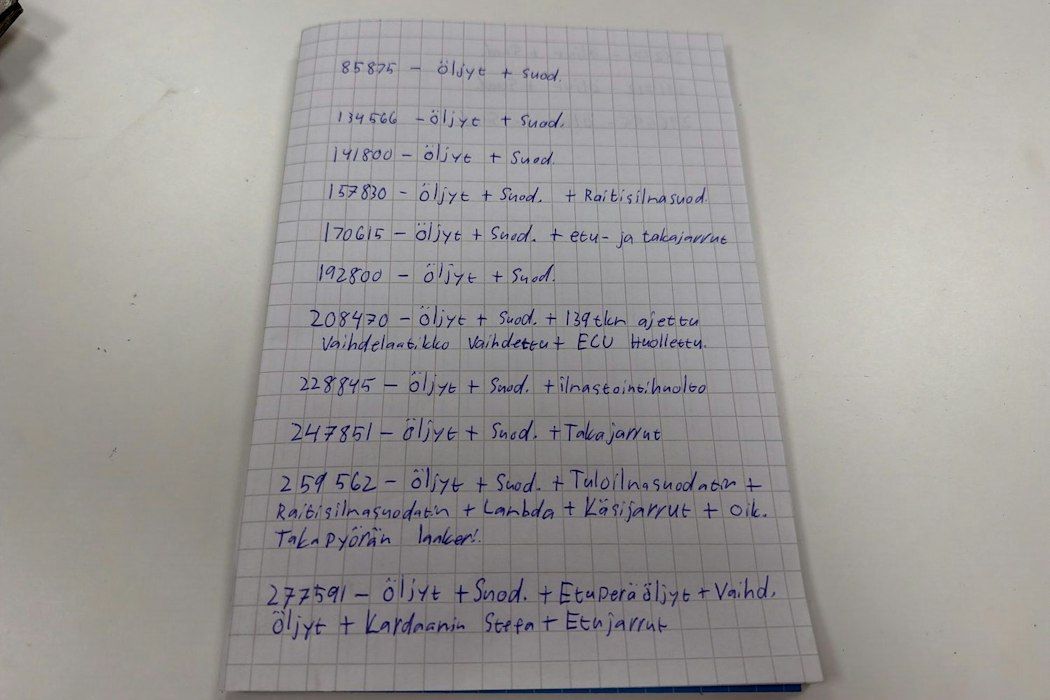 85875 - öljyt + suod.
134566 - öljyt + Suod.
141800 - öljyt + Suod.
157830 - öljyt + Suod. + Raitisilmasuod.
170615 - öljyt + Suod. + etu- ja takajarrut
192800 - öljyt + Suod.
208470 - öljyt + Suod. + 139tkm ajettu
Vaihdelaatikko Vaihdettu + ECU Huollettu.
228845 - öljyt + Suod. + ilmastointihuolto
247851 - öljyt + Suod. + Takajarrut
259 562 - öljyt + Suod. + Tuloilmasuodatin +
Raitisilmasuodatin + Lambda + Käsijarrut + Oik.
Takapyörän laakeri.
277591 - öljyt + Suod. + Etuperä öljyt + Vaihd.
Öljyt + Kardaanin Stefa + Etujarrut